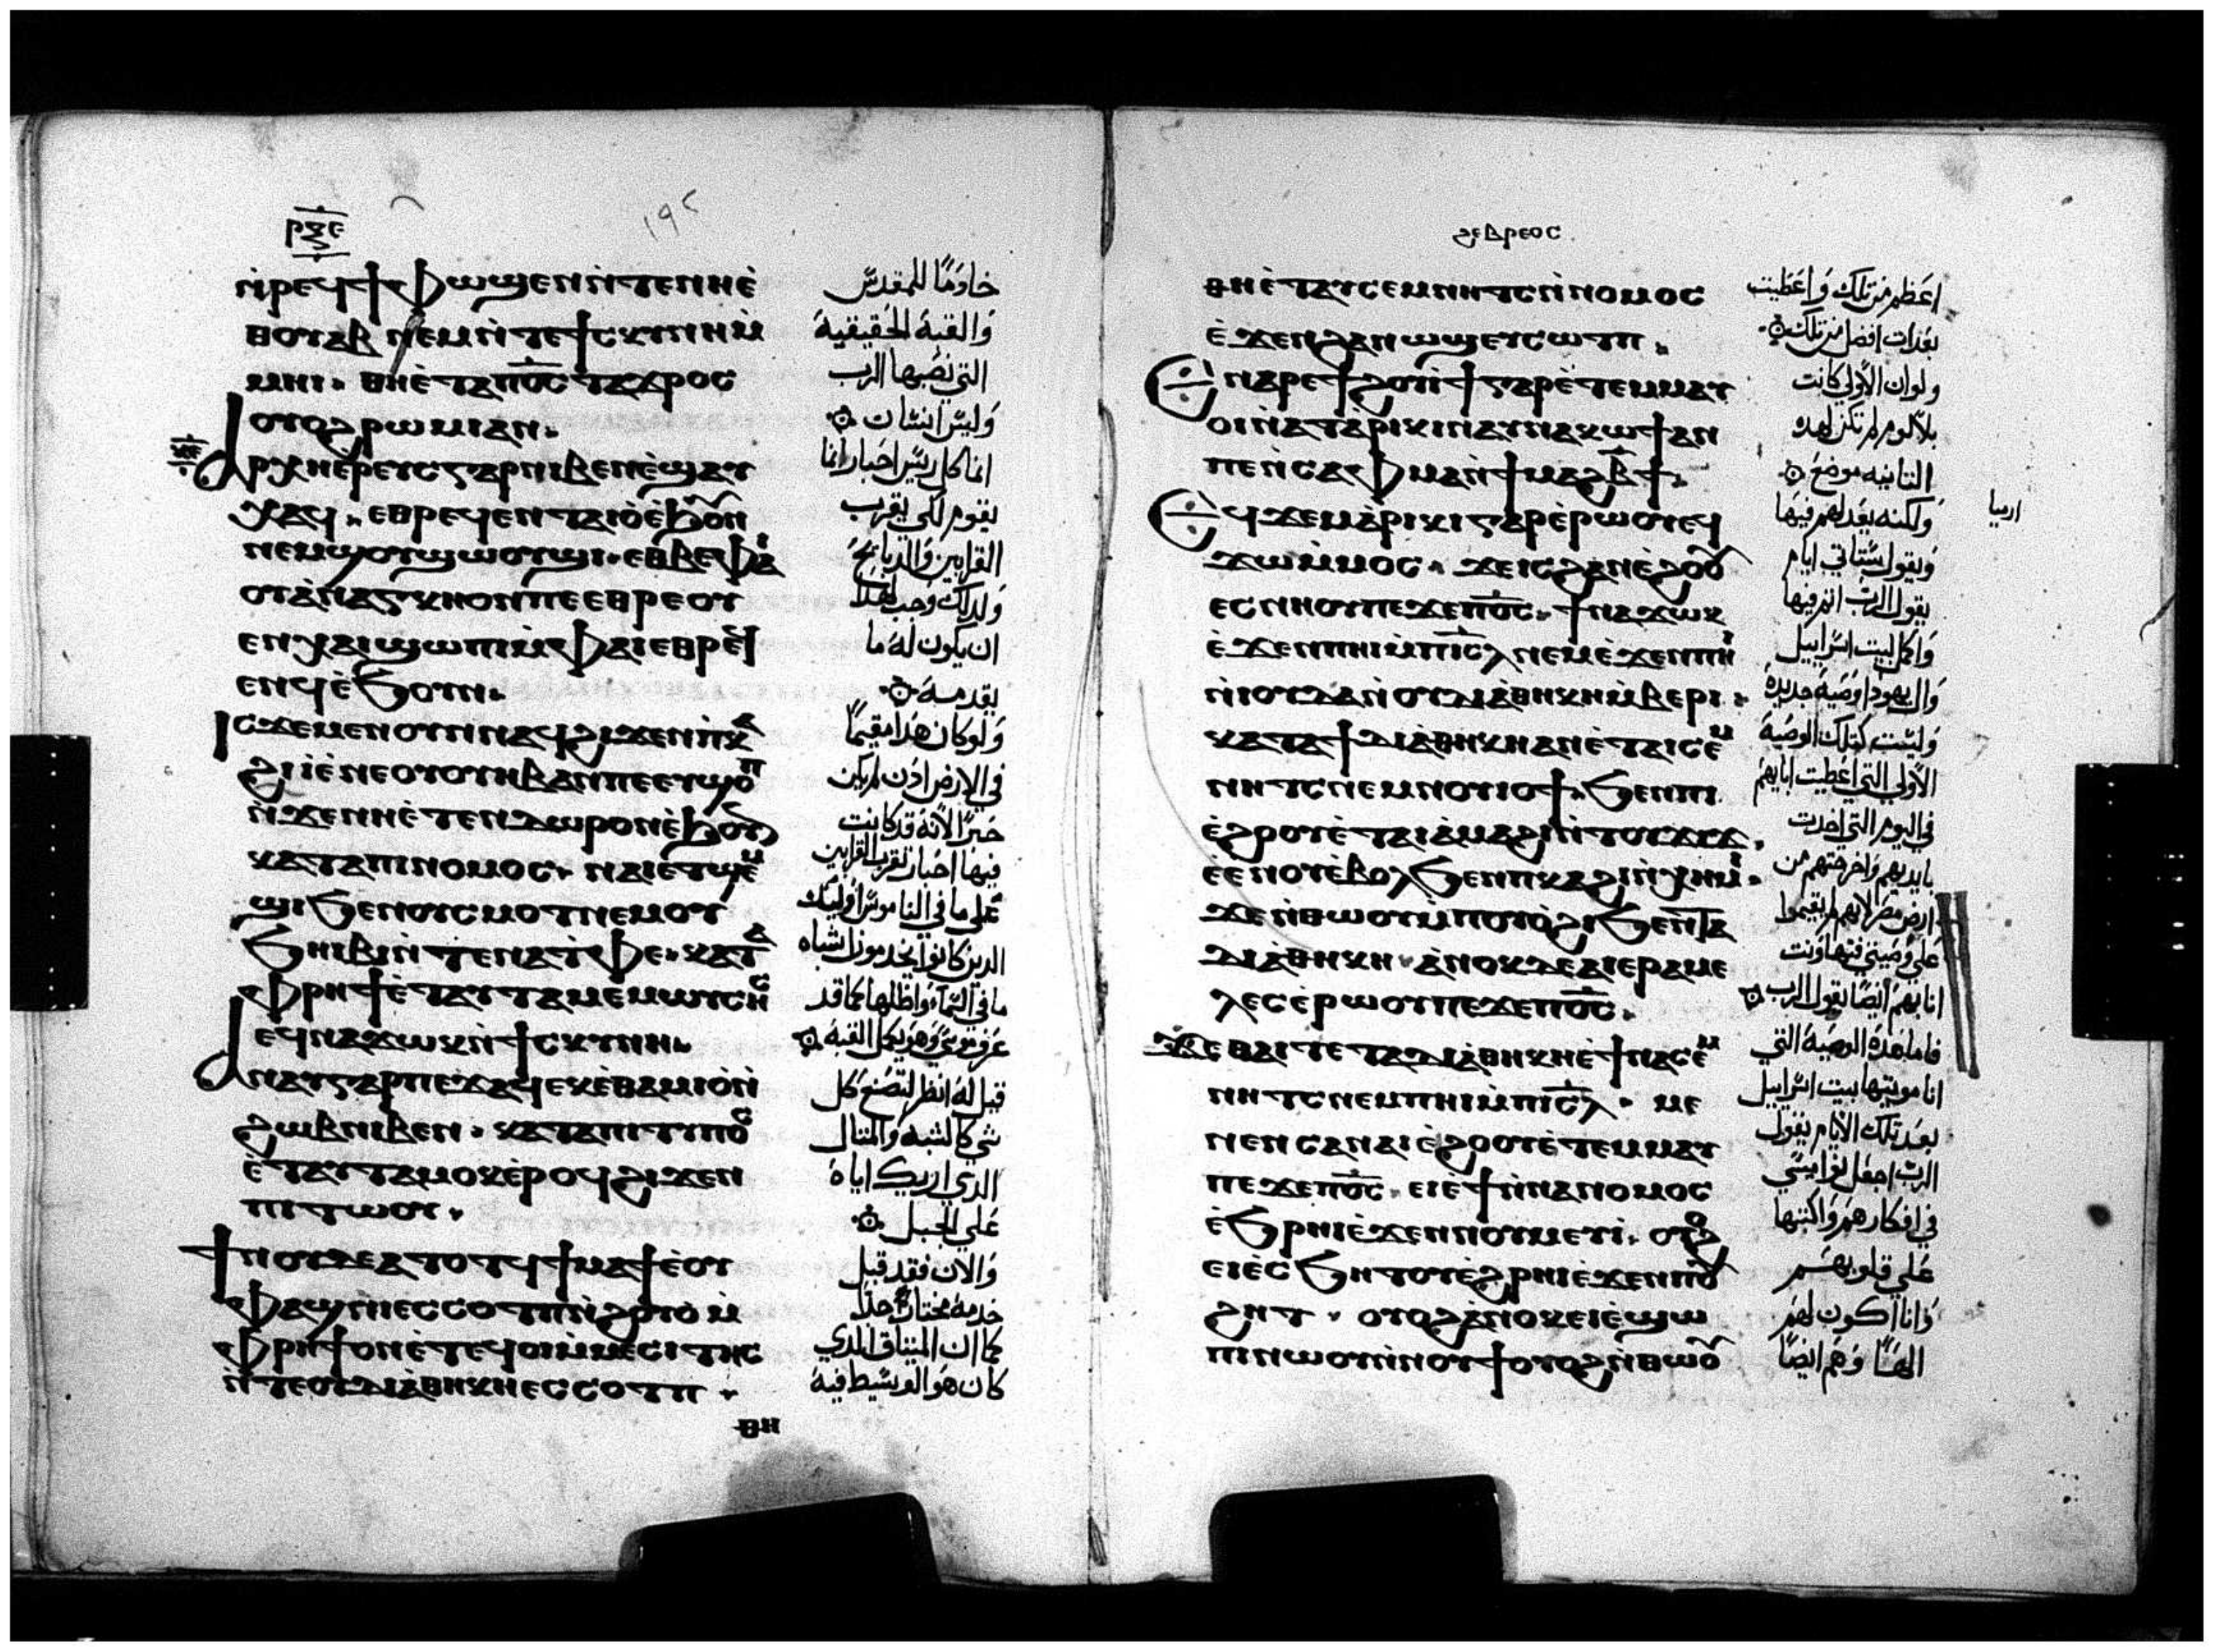 ⲣⲝⲉ
١٩٢
ⲛ̀ⲣⲉϥϯⲫⲱϣⲉⲛⲛ̀ⲧⲉⲛⲏⲉ̀
ⲑⲟⲩⲁⲃ ⲛⲉⲙⲛ̀ⲧⲉϯⲥⲕⲩⲛⲏⲙ̀
ⲙⲏⲓ. ⲑⲏⲉ̀ⲧⲁⲡⲟ̅ⲥ̅ⲧⲁϫⲣⲟⲥ
ⲟⲩⲟϩⲣⲱⲙⲓⲁⲛ.
ⲁⲣⲭⲏⲉ̀ⲣⲉⲩⲥⲅⲁⲣⲛⲓⲃⲉⲛⲉ̀ϣⲁⲩ
ⲭⲁϥ. ⲉⲑⲣⲉϥⲉⲛⲧⲁⲓⲟⲉ̀ϧⲟⲩⲛ
ⲛⲉⲙϣⲟⲩϣⲱⲟⲩϣⲓ. ⲉⲑⲃⲉⲫⲁ
ⲟⲩⲁ̀ⲛⲁⲅⲕⲏⲟⲛⲡⲉⲉⲑⲣⲉⲟⲩ
ⲉⲛⲭⲁⲓϣⲱⲡⲓⲙ̀ⲫⲁⲓⲉⲑⲣⲉϥ
ⲉⲛϥⲉ̀ϧⲟⲩⲛ.
ⲓⲥϫⲉⲙⲉⲛⲟⲩⲛⲛⲁϥϩⲓϫⲉⲛⲡⲕⲁ
ϩⲓⲓⲉ̀ⲛⲉⲟⲩⲟⲩⲏⲃⲁⲛⲡⲉⲉⲧϣⲟⲡ
ⲛ̀ϫⲉⲛⲏⲉ̀ⲧⲉⲛⲇⲱⲣⲟⲛⲉ̀ϧⲟⲩⲛ
ⲕⲁⲧⲁⲡⲓⲛⲟⲙⲟⲥ. ⲛⲁⲓⲉⲧϣⲉⲙ
ϣⲓϧⲉⲛⲟⲩⲥⲙⲟⲧⲛⲉⲙⲟⲩ
ϧⲏⲓⲃⲓⲛ̀ⲧⲉⲛⲁⲧ̀ⲫⲉ. ⲕⲁⲧⲁ
ⲫⲣⲏϯⲉ̀ⲧⲁⲩⲧⲁⲙⲉⲙⲱⲩⲥⲏⲥ
ⲉϥⲛⲁϫⲱⲕⲛ̀ϯⲥⲕⲩⲛⲏ.
ⲁⲛⲁⲩⲅⲁⲣⲡⲉϫⲁϥⲉⲕⲉ̀ⲑⲁⲙⲓⲟⲛ̀
ϩⲱⲃⲛⲓⲃⲉⲛ. ⲕⲁⲧⲁⲡⲓⲧⲩⲡⲟⲥ
ⲉ̀ⲧⲁⲩⲧⲁⲙⲟⲕⲉ̀ⲣⲟϥϩⲓϫⲉⲛ
ⲡⲓⲧⲱⲟⲩ.
ϯⲛⲟⲩⲇⲉⲁⲧⲟⲧϥϯⲙⲁϯⲉ̀ⲟⲩ
ⲫⲁϣⲛⲉⲥⲥⲟⲧⲡⲛ̀ϩⲟⲩⲟ̀ⲙ̀
ⲫⲣⲏϯⲟⲛⲉ̀ⲧⲉϥⲟⲓⲙ̀ⲙⲉⲥⲓⲧⲏⲥ
ⲛ̀ⲧⲉⲟⲩⲇⲓⲁ̀ⲑⲏⲕⲏⲉⲥⲥⲟⲧⲡ.
ⲑⲏ
خادمًا للمقدس
والقبة الحقيقية
التي نصبها الرب
وليس انسان
انما كل ريس احبار انما
يقوم لكي يقرب
القرابين والدبايح
ولدلك وجب لهدا
ان يكون له ما
يقدمه
ولو كان هدا مقيمًا
في الارض ادن لم يكن
حبرًا لانه قد كانت
فيها احبار تقرب القرابين
على ما في الناموس اوليك
الدين كانوا يخدمون اشباه
ما في السماء واظلها كما قد
عرف موسي وهو يكمل القبة
قيل له انظر لتصنع كل
شي كالشبه والمتال
الدي اريك اياه
علي الجبل
والان فقد قبل
خدمة مختارة جدًا
كما ان الميتاق الدي
كان هو الوسيط فيه
ϩⲉⲃⲣⲉⲟⲥ
ⲑⲏⲉ̀ⲧⲁⲩⲥⲉⲙⲛⲏⲧⲥⲛ̀ⲛⲟⲙⲟⲥ
ⲉ̀ϫⲉⲛϩⲁⲛⲱϣⲉⲩⲥⲱⲧⲡ.
ⲉⲛⲁⲣⲉϯϩⲟⲩⲓ̀ϯⲅⲁⲣⲉ̀ⲧⲉⲙⲙⲁⲩ
ⲟⲓⲛ̀ⲁⲧⲁ̀ⲣⲓⲕⲓⲛⲁⲩⲛⲁⲕⲱϯⲁⲛ
ⲡⲉⲛ̀ⲥⲁⲫⲙⲁⲛ̀ϯⲙⲁϩⲃ̅ϯ.
ⲉϥϫⲉⲙⲁ̀ⲣⲓⲕⲓⲅⲁⲣⲉ̀ⲣⲱⲟⲩⲉϥ
ϫⲱⲙ̀ⲙⲟⲥ. ϫⲉⲓⲥϩⲁⲛⲉ̀ϩⲟⲟⲩ
ⲉⲥⲛⲏⲟⲩⲡⲉϫⲉⲡⲟ̅ⲥ̅. ϯⲛⲁϫⲱⲕ
ⲉ̀ϫⲉⲛⲡⲏⲓⲙ̀ⲡⲓ̅ⲥ̅ⲗ̅ⲛⲉⲙⲉ̀ϫⲉⲛⲡⲏⲓ
ⲛ̀ⲓⲟⲩⲇⲁⲛ̀ⲟⲩⲇⲓⲁ̀ⲑⲏⲕⲏⲙ̀ⲃⲉⲣⲓ.
ⲕⲁⲧⲁϯⲇⲓⲁ̀ⲑⲏⲕⲏⲁⲛⲉ̀ⲧⲁⲓⲥⲉⲙ
ⲛⲏⲧⲥⲛⲉⲙⲛⲟⲩⲓⲟϯ. ϧⲉⲛⲡⲓ
ⲉ̀ϩⲟⲟⲩⲉ̀ⲧⲁⲓⲁ̀ⲙⲁϩⲓⲛ̀ⲧⲟⲩϫⲓϫ.
ⲉ̀ⲉⲛⲟⲩⲉ̀ⲃⲟⲗϧⲉⲛⲡⲕⲁϩⲓⲛ̀ⲭⲏⲙⲓ.
ϫⲉⲛ̀ⲑⲱⲟⲩⲙ̀ⲡⲟⲩⲟ̀ϩⲓϧⲉⲛⲧⲁ
ⲇⲓⲁ̀ⲑⲏⲕⲏ. ⲁ̀ⲛⲟⲕⲇⲉⲁⲓⲉⲣⲁⲙⲉ
ⲗⲉⲥⲉ̀ⲣⲱⲟⲩⲡⲉϫⲉⲡⲟ̅ⲥ̅.
ϫⲉⲑⲁⲓⲧⲉⲧⲁⲇⲓⲁ̀ⲑⲏⲕⲏⲉ̀ϯⲛⲁⲥⲉⲙ
ⲛⲏⲧⲥⲛⲉⲙⲡⲏⲓⲙ̀ⲡⲓ̅ⲥ̅ⲗ̅. ⲙⲉ
ⲛⲉⲛⲥⲁⲛⲁⲓⲉ̀ϩⲟⲟⲩⲉ̀ⲧⲉⲙⲙⲁⲩ
ⲡⲉϫⲉⲡⲟ̅ⲥ̅. ⲉⲓⲉ̀ϯⲛ̀ⲛⲁⲛⲟⲙⲟⲥ
ⲉ̀ϧⲣⲏⲓⲉ̀ϫⲉⲛⲡⲟⲩⲙⲉⲩⲓ. ⲟⲩⲟϩ
ⲉⲓⲉ̀ⲥϧⲏⲧⲟⲩⲉ̀ϩⲣⲏⲓⲉ̀ϫⲉⲛⲡⲟⲩ
ϩⲏⲧ. ⲟⲩⲟϩⲁ̀ⲛⲟⲕⲉⲓⲉ̀ϣⲱ
ⲡⲓⲛⲱⲟⲩⲛ̀ⲛⲟⲩϯⲟⲩⲟϩⲛ̀ⲑⲱⲟⲩ
اعظم من تلك واعطيت
بعدات افضل من تلك
ولو ان الاولي كانت
بلا لوم لم تكن لهده
التانيه موضع
ولكنه يعدلهم فيها
ويقول ستاتي ايام
يقول الرب اتم فيها
واكمل لبيت اسراييل
وال يهودا وصية جديدة
وليست كتلك الوصية
الاولي التي اعطيت ابايهم
في اليوم التي اخدت
بايديهم واخرجتهم من
ارض مصر لانهم لم يقيموا
علي وصيتي فتهاونت
انا بهم ايضًا يقول الرب
فاما هده الوصية التي
انا موتيها بيت اسراييل
بعد تلك الايام يقول
الرب اجعل نواميسي
في افكارهم واكتبها
علي قلوبهم
وانا اكون لهم
الهًا وهم ايضًا
ارميا